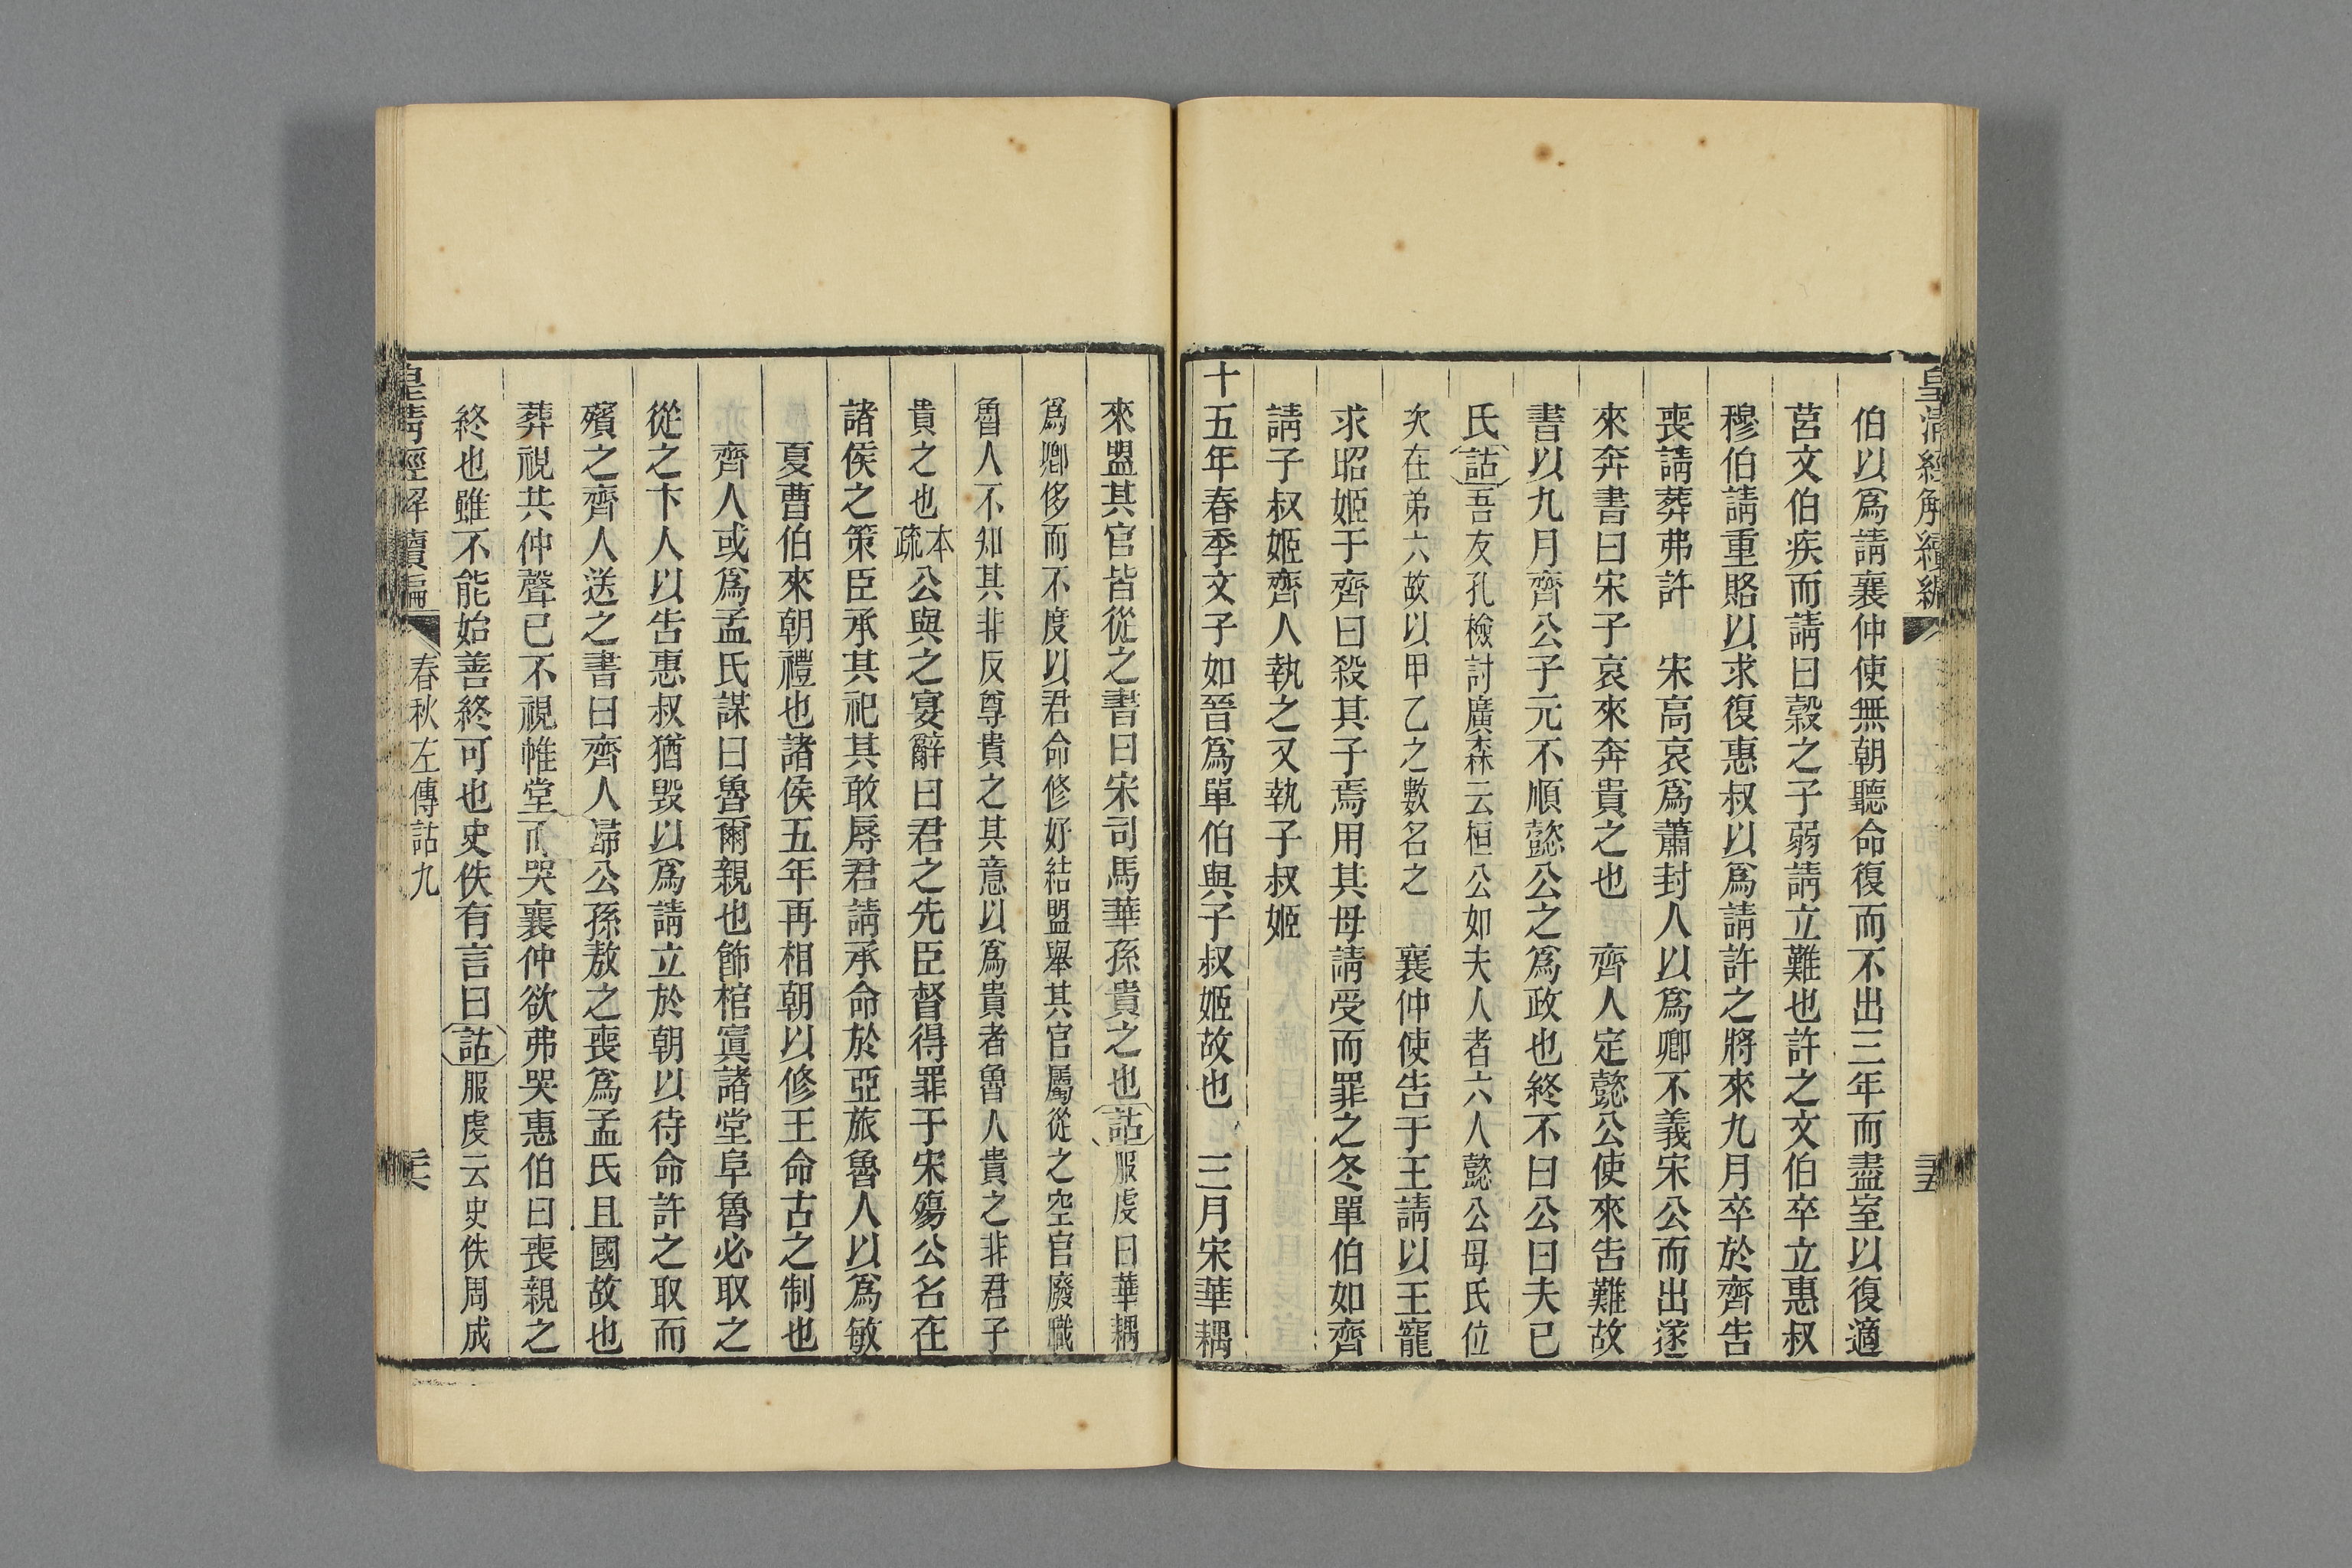 皇清經解續編
伯以爲請襄仲使無朝聽命復而不出三年而盡室以復適
莒文伯疾而請曰糓之子弱請立難也許之文伯卒立惠叔
穆伯請重賂以求復惠叔以爲請許之將來九月卒於齊告
喪請葬弗許　宋高哀爲蕭封人以爲卿不義宋公而出遂
來奔書曰宋子哀來奔貴之也　齊人定懿公使來告難故
書以九月齊公子元不順懿公之爲政也終不曰公曰夫已
氏詁吾友孔檢討廣森云桓公如夫人者六人懿公母氏位
次在弟六故以甲乙之數名之　襄仲使告于王請以王寵
求昭姬于齊曰殺其子焉用其母請受而罪之冬單伯如齊
請子叔姬齊人執之又執子叔姬
十五年春季文子如晉爲單伯與子叔姬故也　三月宋華耦
來盟其官皆從之書曰宋司馬華孫貴之也詁服虔曰華耦
爲卿侈而不度以君命修好結盟舉其官屬從之空官廢職
魯人不知其非反尊貴之其意以爲貴者魯人貴之非君子
貴之也本疏公與之宴辭曰君之先臣督得罪于宋殤公名在
諸侯之策臣承其祀其敢辱君請承命於亞旅魯人以爲敏
夏曹伯來朝禮也諸侯五年再相朝以修王命古之制也
齊人或爲孟氏謀曰魯爾親也飾棺寘諸堂阜魯必取之
從之卞人以告惠叔猶毀以爲請立於朝以待命許之取而
殯之齊人送之書曰齊人歸公孫敖之喪爲孟氏且國故也
葬視共仲聲已不視帷堂而哭襄仲欲弗哭惠伯曰喪親之
終也雖不能始善終可也史佚有言曰詁服虔云史佚周成
皇清經解續編　春秋左傳詁九